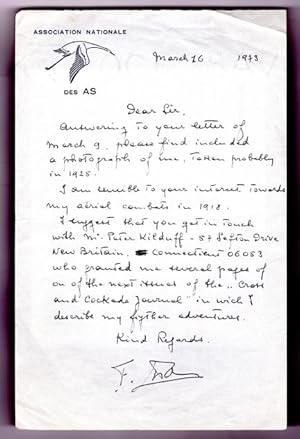 ASSOCIATION NATIONALE
DES AS
March 16 1973
Dear Sir,
Answering to your letter of
March 9, please find included
a photograph of me, taken probably
in 1925.
I am sensible to your interest towards
my aerial combats in 1918.
I suggest that you get in touch
with Mr Peter Kilduff - 57 Sefton Drive
New Britain, Connecticut 06053
who granted me several pages of
on of the next issues of the "Cross
and Cockade Journal" in wich I
describe my fyther adventures.
Kind Regards.
F.